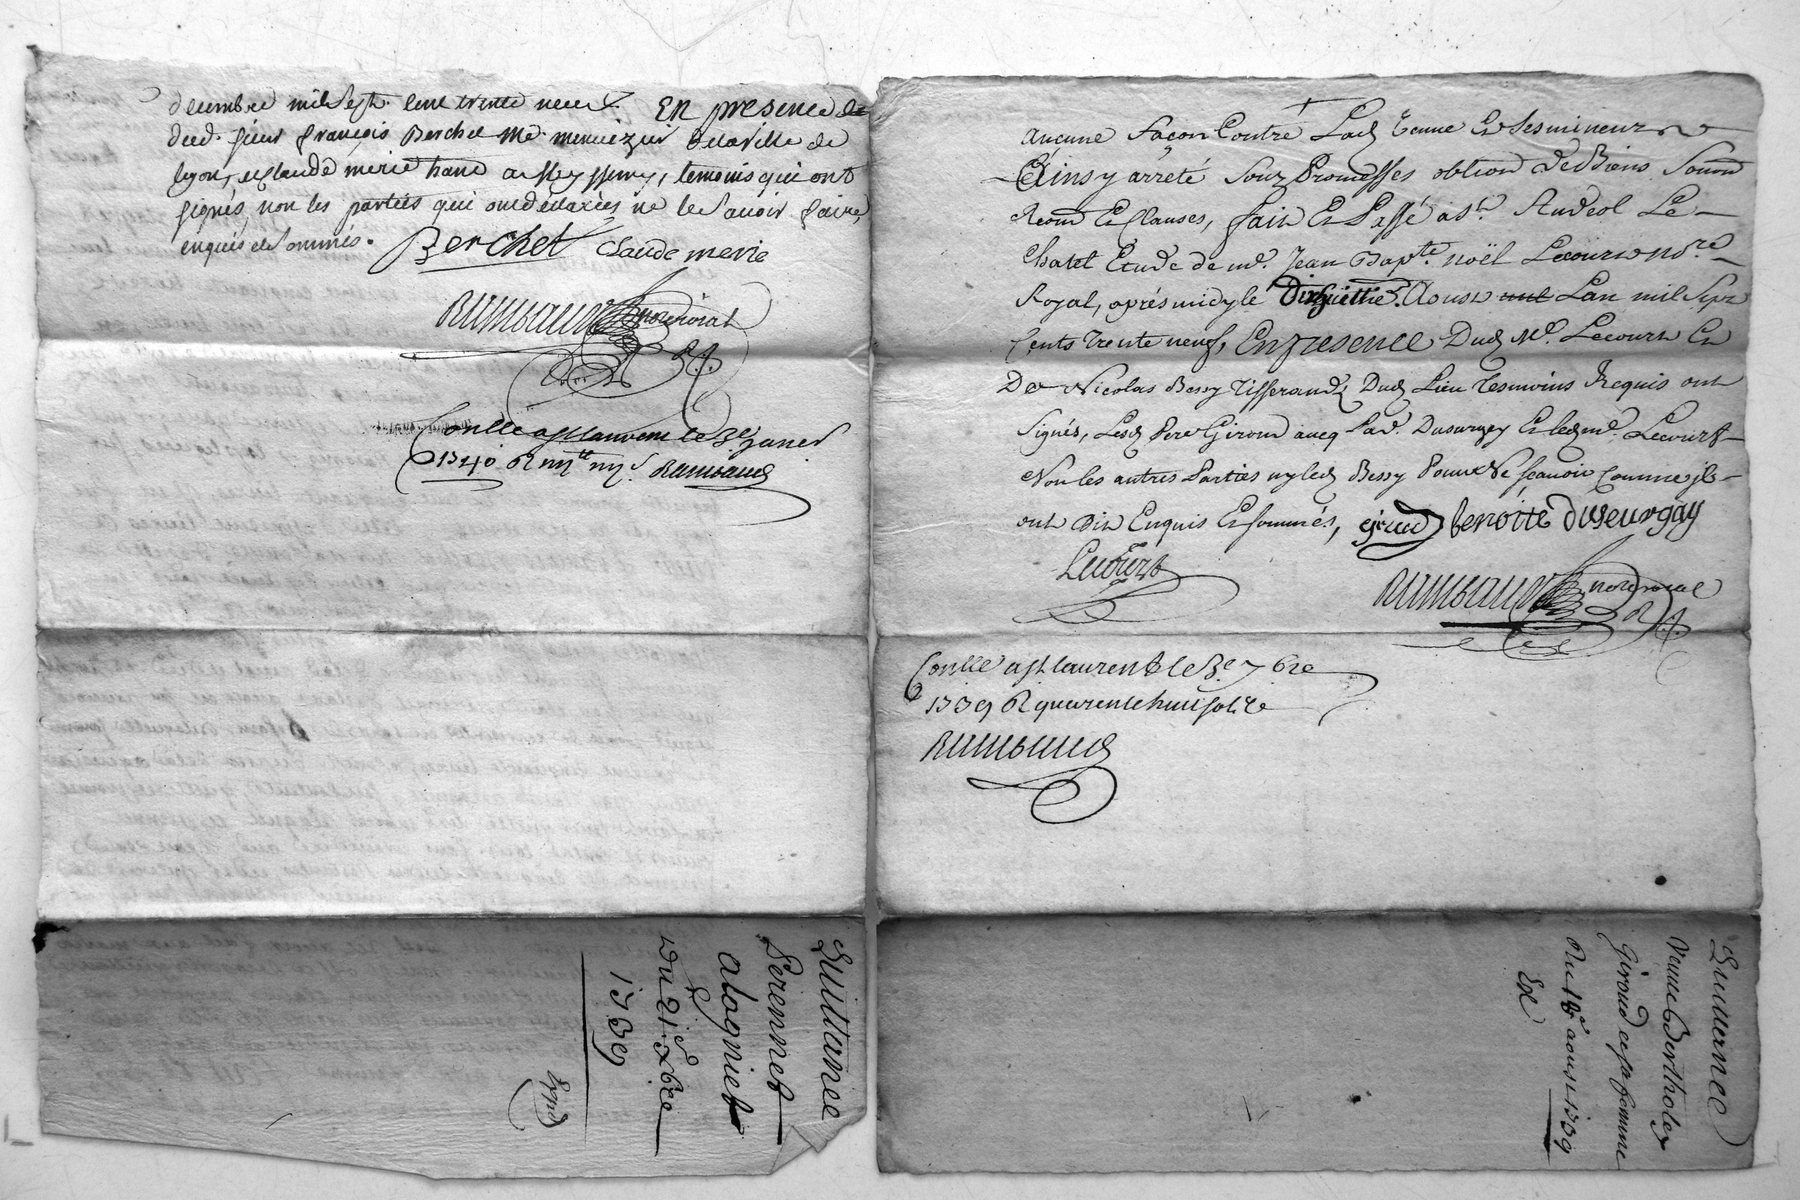 decembre mil sept cent trente neuf. En presence de
dud. sieur françois Berchet Md. menuizier de la ville de
lyon, et claude merie temoins qui ont
signés, non les parties qui ont declarées ne le savoir faire,
enquis et sommés. Berchet claude merie
Rambaud nore roial
Conllé a st laurent le 3e janer
1740 R Rambaud
Quittance
Perennet
alognier
Du 21e Xbre
1739
Expd
aucune façon Contre Lad Venve Et ses mineurs
Ainsy arrété Souz Promesses obtion De Biens
Renon Et Clauses, fait Et Passé a st. Andeol Le
Chatel Etude de me. Jean Bapte. noël Lecourt nore
Royal, aprés midy le Dixhuittie. Aoust Lan mil sept
Cents trente neuf, En presence Dud Me. Lecourt Et
De Nicolas Bessy tisserand, Dud Lieu tesmoins Requis ont
Signés, Lesd Pere Giroud avecq Lad. Duseurgey Et led me. Lecourt
Non les autres Parties ny led Bessy Pour ne sçavoir Comme ils
ont dit Enquis Et sommés, giroud benoite duseurgay
Lecourt
Rambaud nore roial
Conllé a st laurent le 3e 7bre
1739 R quarente huit sols
Rambaud
Quittance
Venve Berthollet
Giroud et sa femme
Du 18e aoust 1739
Exe